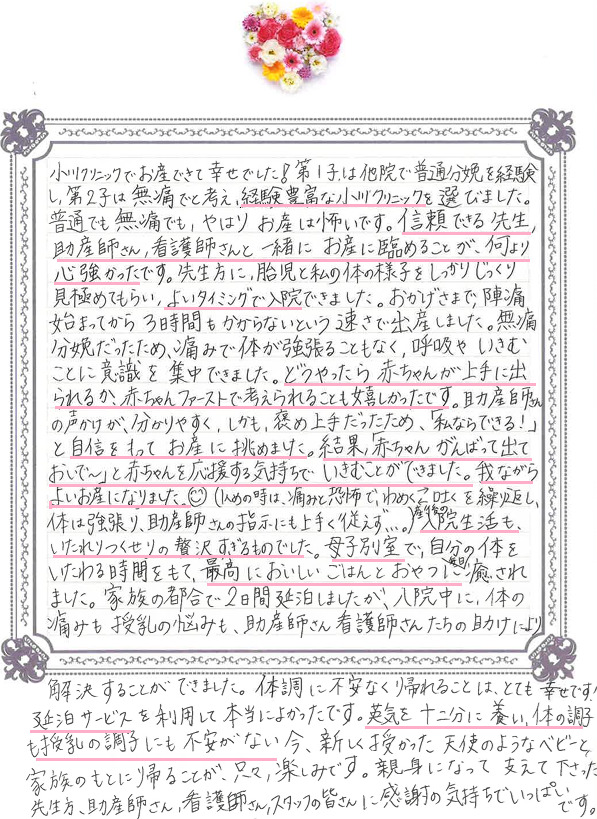 小川クリニックでお産できて幸せでした!第1子は他院で普通分娩を経験
し、第2子は無痛でと考え、経験豊富な小川クリニックを選びました。
普通でも無痛でも、やはりお産は怖いです。信頼できる先生、
助産師さん、看護師さんと一緒にお産に臨めることが、何より
心強かったです。先生方に、胎児と私の体の様子をしっかりじっくり
見極めてもらい、よいタイミングで入院できました。おかげさまで、陣痛
始まってから3時間もかからないという速さで出産しました。無痛
分娩だったため、痛みで体が強張ることもなく、呼吸やいきむ
ことに意識を集中できました。どうやったら赤ちゃんが上手に出
られるか、赤ちゃんファーストで考えられることも嬉しかったです。助産師さん
の声かけが、分かりやすく、しかも、褒め上手だったため、「私ならできる!」
と自信をもってお産に挑めました。結果、「赤ちゃんがんばって出て
おいで〜」と赤ちゃんを応援する気持ちでいきむことができました。我ながら
よいお産になりました、☺(1人めの時は、痛みと恐怖で、わめく⇄吐くを繰り返し、
体は強張り、助産師さんの指示にも上手く従えず…。)産後の入院生活も、
いたれりつくせりの贅沢すぎるものでした。母子別室で、自分の体を
いたわる時間をもて、最高においしいごはんとおやつに毎回癒され
ました。家族の都合で2日間延泊しましたが、入院中に、体の
痛みも授乳の悩みも、助産師さん看護師さんたちの助けにより
解決することができました。体調に不安なく帰れることは、とても幸せです!
延泊サービスを利用して本当によかったです。英気を十二分に養い、体の調子
も授乳の調子にも不安がない今、新しく授かった天使のようなベビーと、
家族のもとに帰ることが、只々、楽しみです。親身になって支えて下さった
先生方、助産師さん、看護師さん、スタッフの皆さんに感謝の気持ちでいっぱい
です。